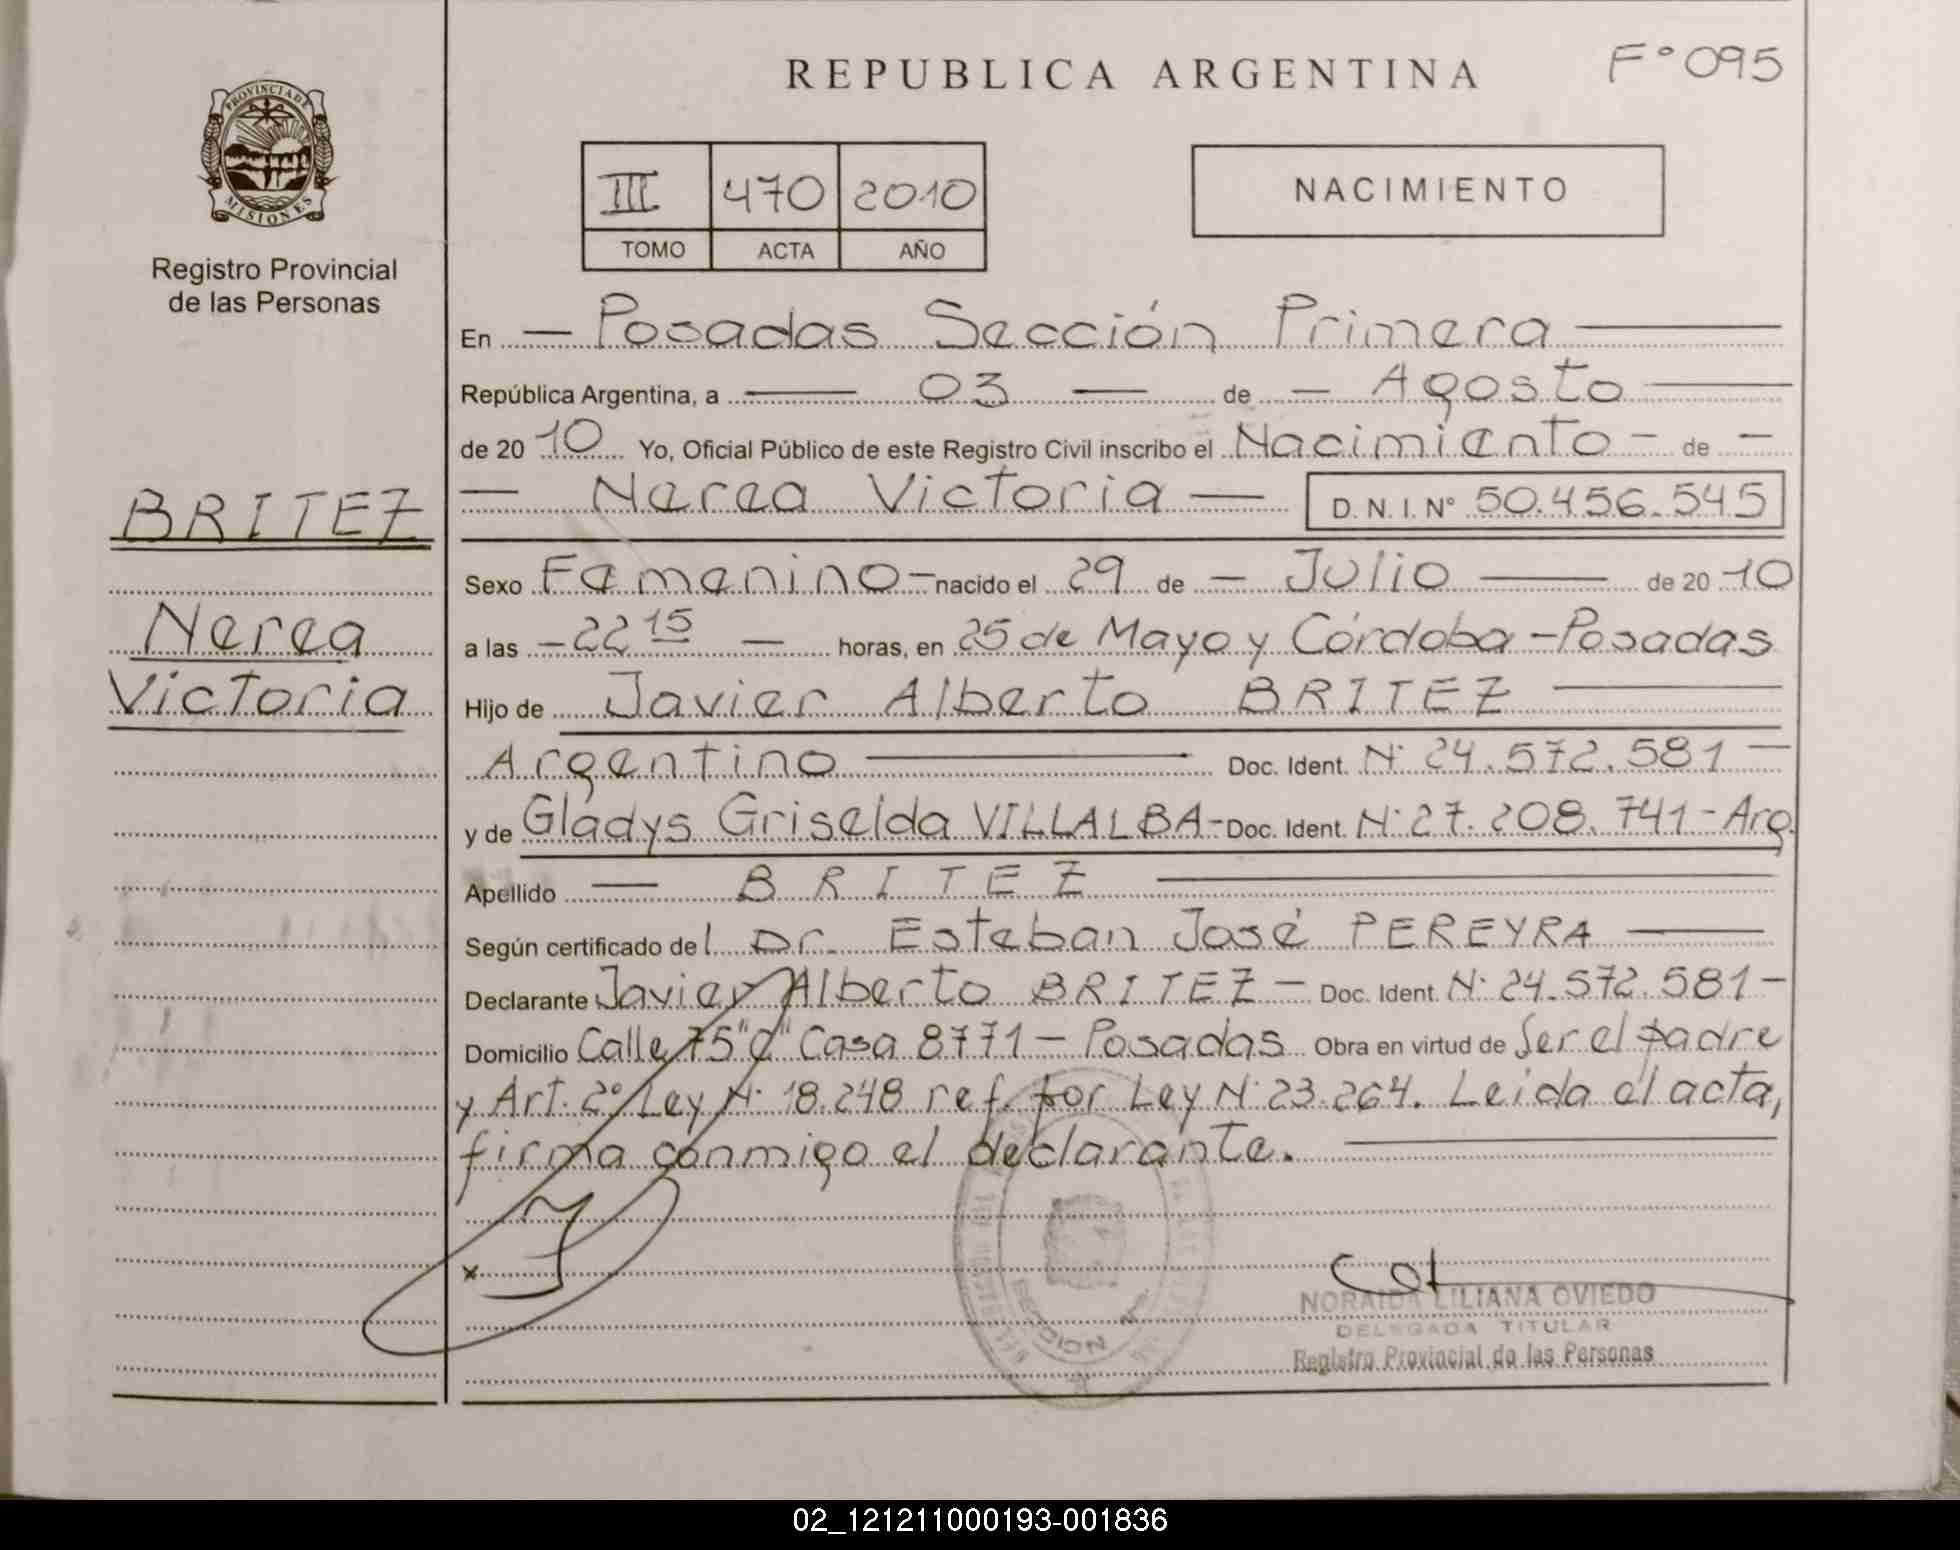 REPUBLICA ARGENTINA
F° 095
PROVINCIA DE
MISIONES
Registro Provincial
de las Personas
III 470 2010
TOMO ACTA AÑO
NACIMIENTO
BRITEZ
Nerea
Victoria
En — Posadas Sección Primera —
República Argentina, a — 03 — de — Agosto —
de 2010 Yo, Oficial Público de este Registro Civil inscribo el Nacimiento — de —
— Nerea Victoria — D.N.I. N° 50.456.545
Sexo Femenino — nacido el 29 de — Julio — de 2010
a las — 22 15 — horas, en 25 de Mayo y Córdoba - Posadas
Hijo de Javier Alberto BRITEZ —
Argentino — Doc. Ident. N° 24.572.581 —
y de Gladys Griselda VILLALBA - Doc. Ident. N° 27.208.741 - Arg.
Apellido — BRITEZ —
Según certificado del Dr. Esteban José PEREYRA —
Declarante Javier Alberto BRITEZ — Doc. Ident. N° 24.572.581 —
Domicilio Calle 75 "C" Casa 8771 — Posadas Obra en virtud de Ser el padre
y Art. 2° Ley N° 18.248 ref. por Ley N° 23.264. Leida el acta,
firma conmigo el declarante. —
x
NORAIDA LILIANA OVIEDO
DELEGADA TITULAR
Registro Provincial de las Personas
02_121211000193-001836